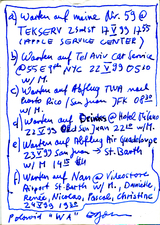 a) Warten auf meine Nr. 59 @
TEKSERV 23rd ST 17 V 99 1755
(APPLE SERVICE CENTER)
b) Warten auf Tel Aviv Car Service
@ 55 E 9th NYC 22 V 99 0510
w/ M.
c) Warten auf Abflug TWA nach
Puerto Rico / San Juan JFK 0830
w/ M.
d) Warten auf Drinks @ Hotel Milano
22 V 99 Old San Juan w/ M.
e) Warten auf Abflug Air Guadeloupe
23 V 99 San Juan → St. Barth
w/ M
f) Warten auf Nan @ Videostore
Airport St. Barth w/ M., Danielle,
Renée, Nicolas, Pascal, Christine
24 V 99 1930
Polaroid "WA"